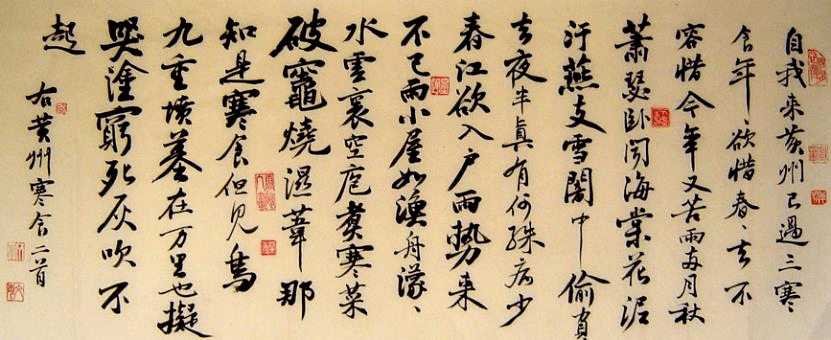 自我来黄州已過三寒
食年、欲惜春、去不
容惜今年又苦雨兩月秋
蕭瑟卧聞海棠花泥
汙燕支雪闇中偷負
去夜半真有何殊病少
春江欲入户雨勢来
不已雨小屋如漁舟濛、
水雲裏空庖煮寒菜
破竈燒濕葦那
知是寒食但见烏
九重墳墓在万里也擬
哭塗窮死灰吹不
起
右黄州寒食二首